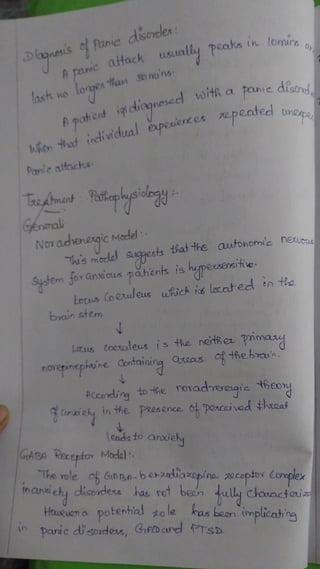 Diagnosis of Panic disorder:
A panic attack usually peaks in 10mins or
lasts no longer than 30mins.
A patient is diagnosed with a panic disord
when that individual experiences repeated unexpe
Panic attacks.
Treatment Pathophysiology:-
General:
Noradrenergic Model:-
This model suggests that the autonomic nervous
system for anxious patients is hypersensitive.
Locus Coeruleus which is located in the
brain stem
↓
Locus coeruleus is the neither primary
norepinephrine containing areas of the brain.
↓
According to the noradrenergic theory
of anxiety in the presence of perceived threat
↓
leads to anxiety
GABA Receptor Model:-
The role of GABA-benzodiazepine receptor complex
in anxiety disorders has not been fully characterize
However a potential role has been implicating
in panic disorders, GAD and PTSD.